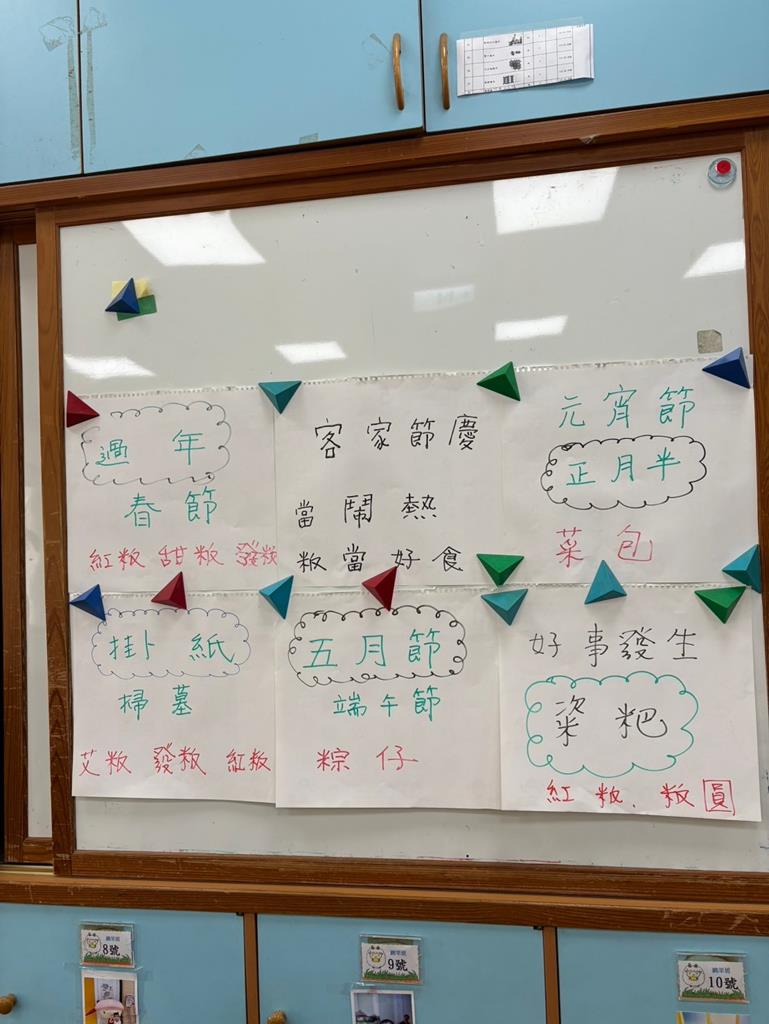 過年
春節
紅粄 甜粄 發粄
客家節慶
當鬧熱
粄當好食
元宵節
正月半
菜包
掛紙
掃墓
艾粄 發粄 紅粄
五月節
端午節
粽仔
好事發生
粢粑
紅粄、粄圓
8號
9號
10號